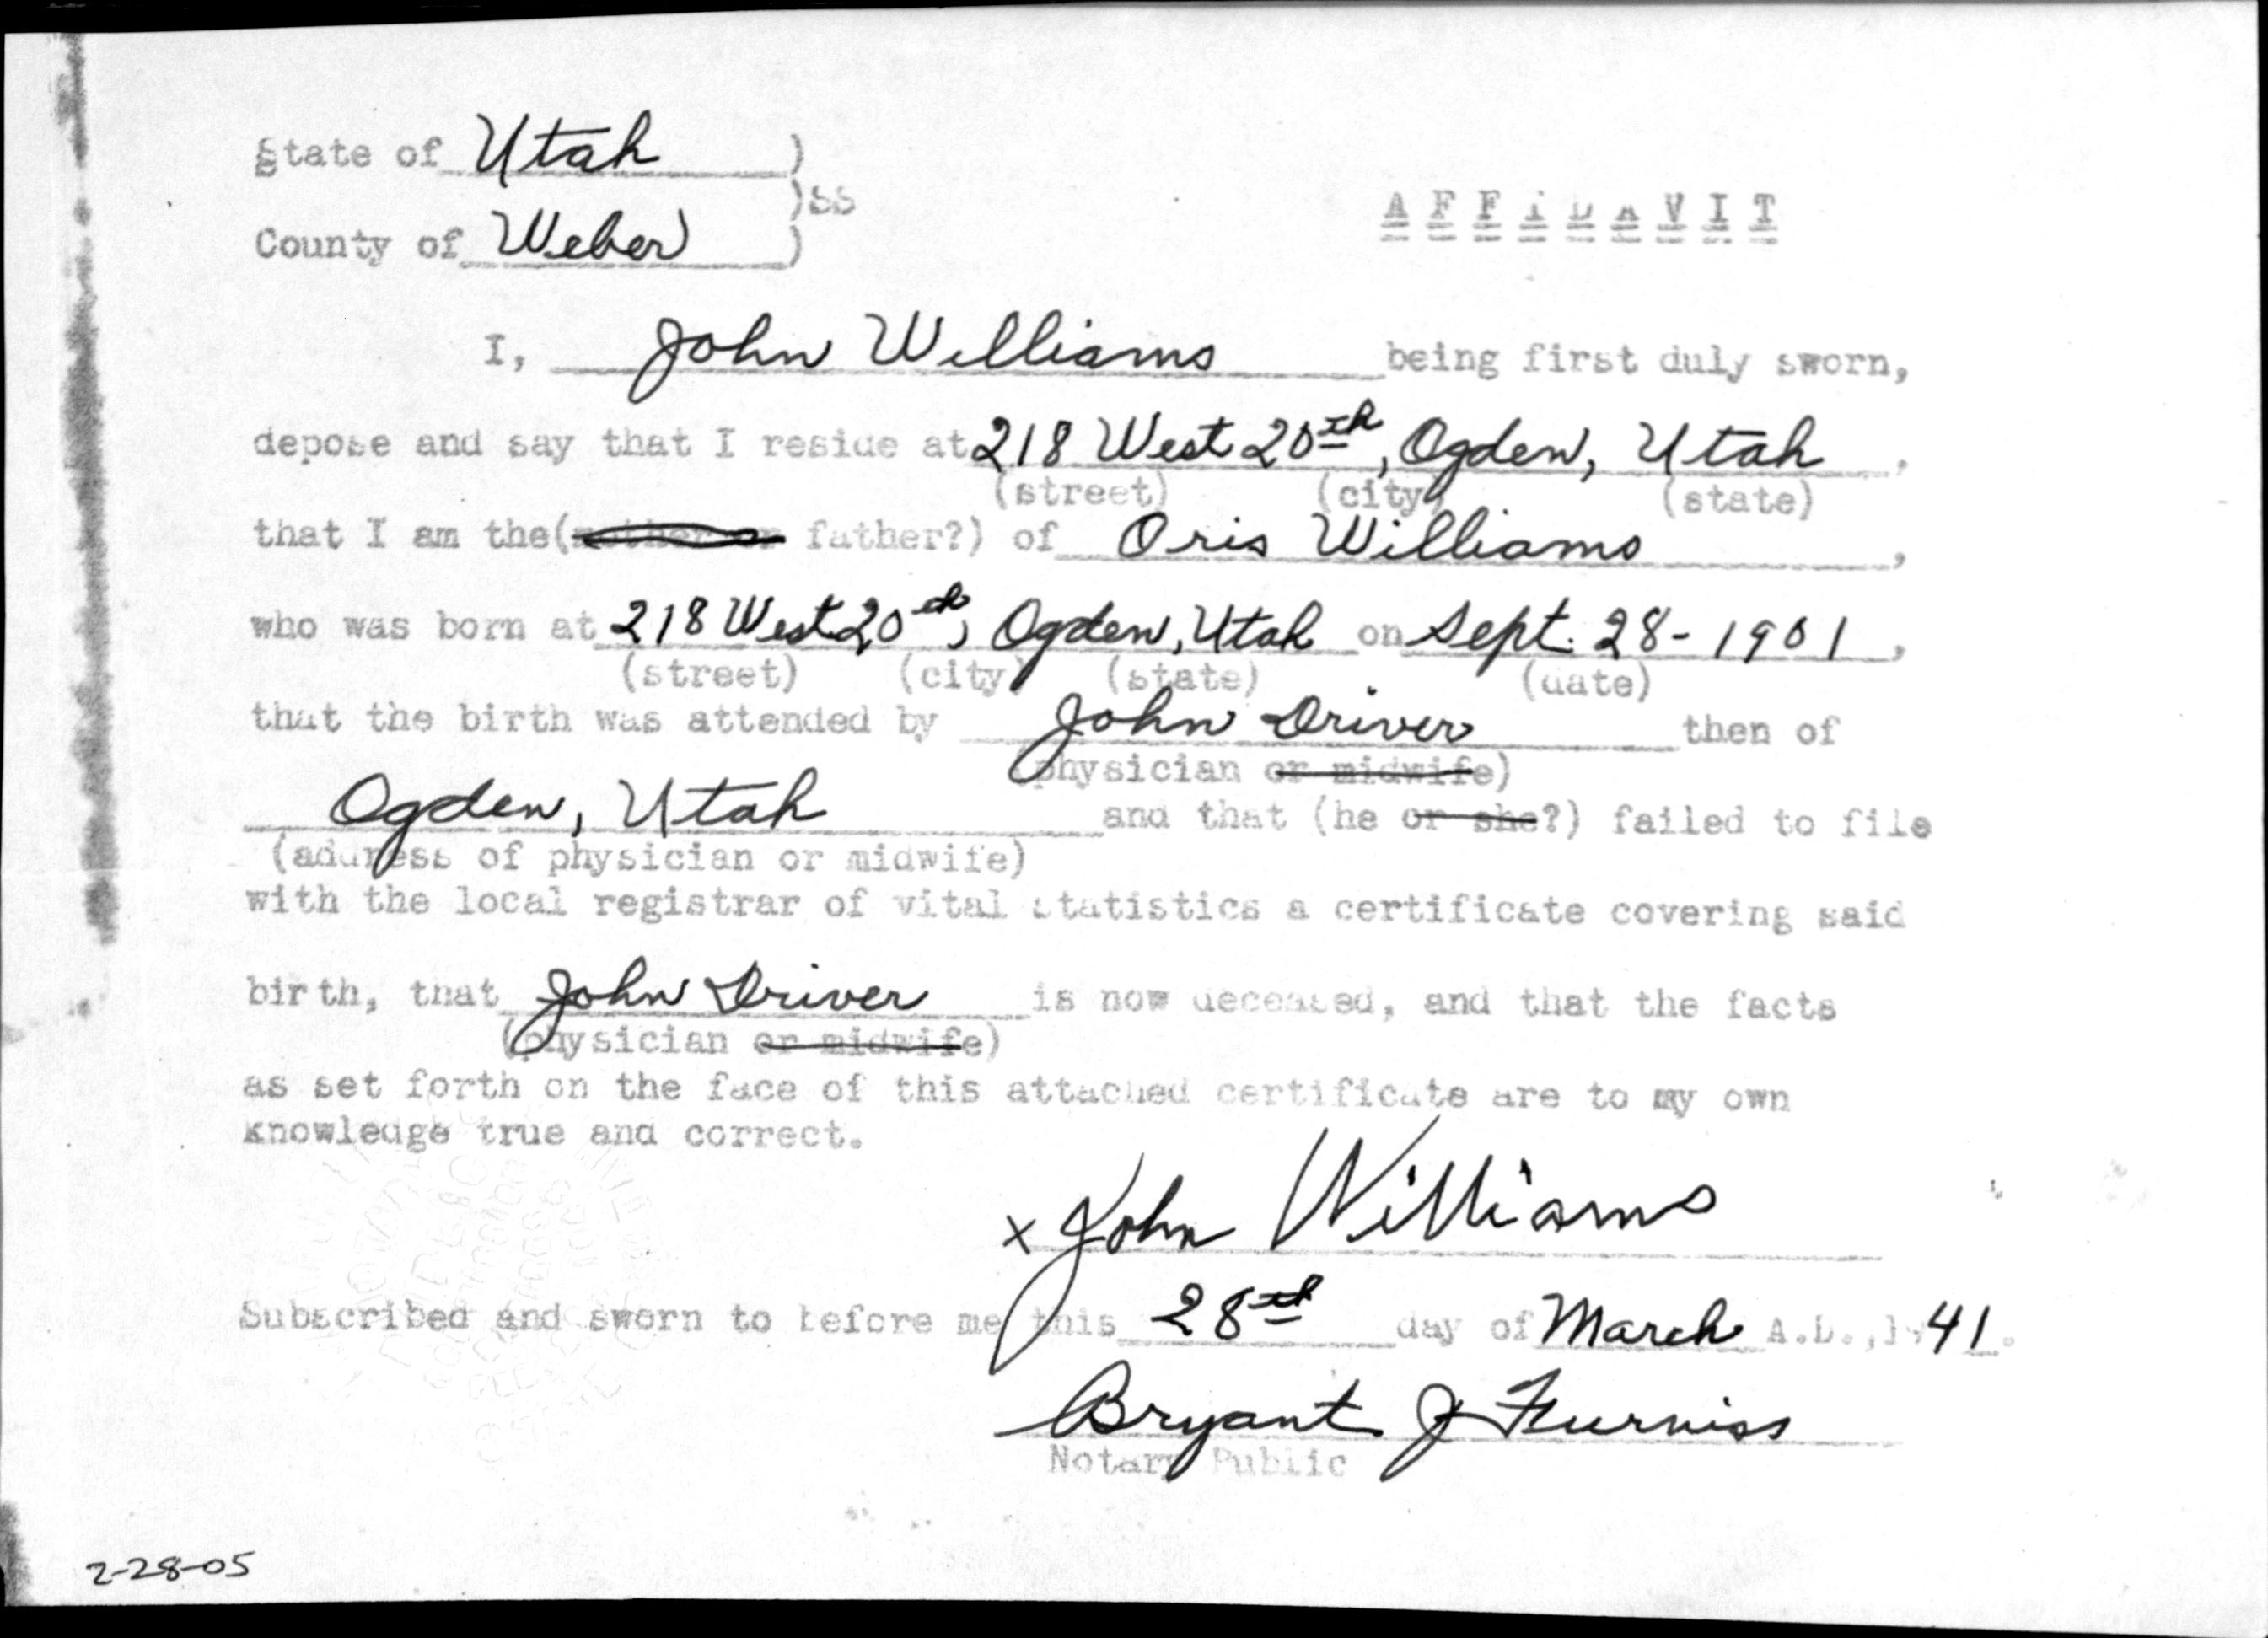 State of Utah )
)SS
AFFIDAVIT
County of Weber )
I, John Williams being first duly sworn,
depose and say that I reside at 218 West 20th, Ogden, Utah,
(street) (city) (state)
that I am the (mother or father?) of Oris Williams,
who was born at 218 West 20th, Ogden, Utah on Sept. 28-1901,
(street) (city) (state) (date)
that the birth was attended by John Driver then of
(physician or midwife)
Ogden, Utah and that (he or she?) failed to file
(address of physician or midwife)
with the local registrar of vital statistics a certificate covering said
birth, that John Driver is now deceased, and that the facts
(physician or midwife)
as set forth on the face of this attached certificate are to my own
knowledge true and correct.
x John Williams
Subscribed and sworn to before me this 28th day of March A.D., 1941.
Bryant J Furniss
Notary Public
2-28-05